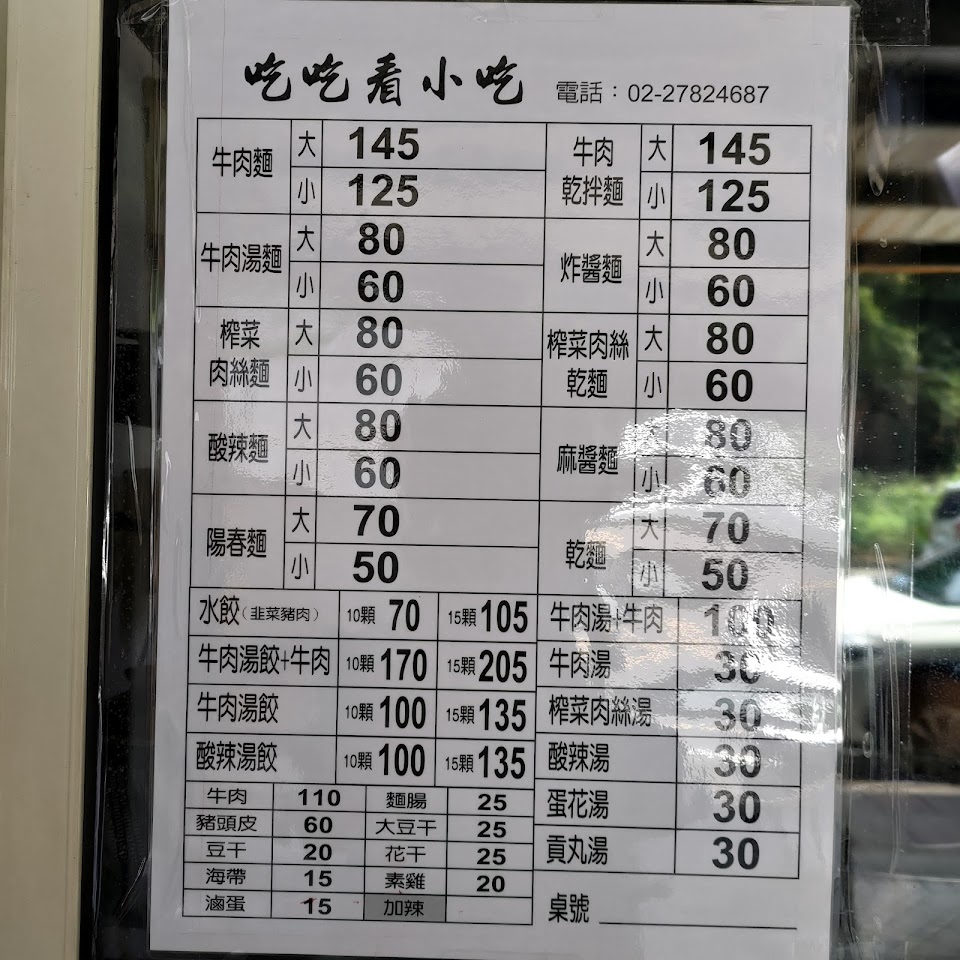 吃吃看小吃 電話：02-27824687
牛肉麵 大 145
小 125
牛肉湯麵 大 80
小 60
榨菜肉絲麵 大 80
小 60
酸辣麵 大 80
小 60
陽春麵 大 70
小 50
牛肉乾拌麵 大 145
小 125
炸醬麵 大 80
小 60
榨菜肉絲乾麵 大 80
小 60
麻醬麵 大 80
小 60
乾麵 大 70
小 50
水餃（韭菜豬肉） 10顆 70 15顆 105
牛肉湯餃+牛肉 10顆 170 15顆 205
牛肉湯餃 10顆 100 15顆 135
酸辣湯餃 10顆 100 15顆 135
牛肉 110 麵腸 25
豬頭皮 60 大豆干 25
豆干 20 花干 25
海帶 15 素雞 20
滷蛋 15 加辣
牛肉湯+牛肉 100
牛肉湯 30
榨菜肉絲湯 30
酸辣湯 30
蛋花湯 30
貢丸湯 30
桌號